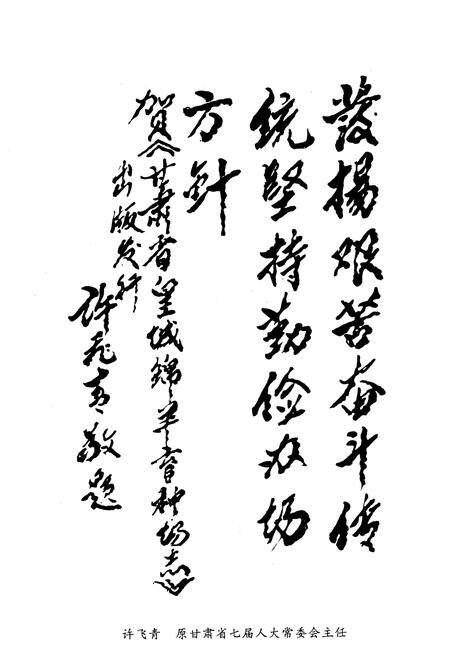 發揚艰苦奋斗傳
统堅持勤俭办场
方針
贺《甘肃省皇城绵羊育种场志》
出版发行
许飞青敬题
许飞青　原甘肃省七届人大常委会主任